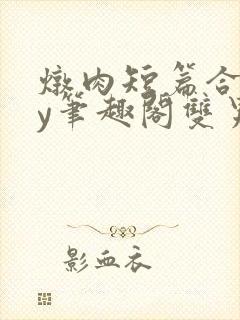 燉肉短篇合
y筆趣閣雙
影血衣